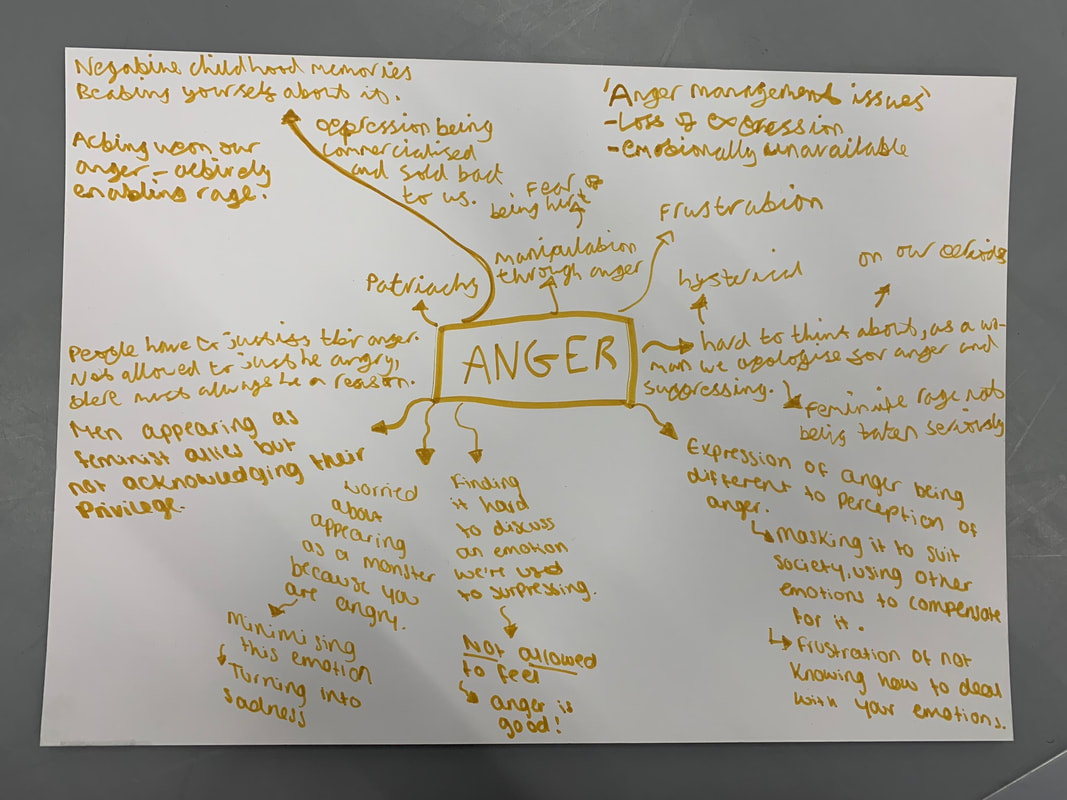 Negative childhood memories
Beating yourself about it.
Acting upon our
anger - actively
enabling rage.
oppression being
commercialised
and sold back
to us.
'Anger management issues'
- Loss of expression
- emotionally unavailable
Fear of
being hurt
manipulation
through anger
Frustration
Patriachy
hysterical
on our periods
ANGER
hard to think about, as a wo-
man we apologise for anger and
suppressing.
feminine rage not
being taken seriously
People have to justify their anger.
Not allowed to just be angry,
there must always be a reason.
Men appearing as
feminist allies but
not acknowledging their
Privilege.
worried
about
appearing
as a monster
because you
are angry.
Minimising
this emotion
Turning into
sadness
Finding
it hard
to discuss
an emotion
we're used
to surpressing.
Not allowed
to feel
anger is
good!
Expression of anger being
different to perception of
anger.
Masking it to suit
society, using other
emotions to compensate
for it.
Frustration of not
knowing how to deal
with your emotions.